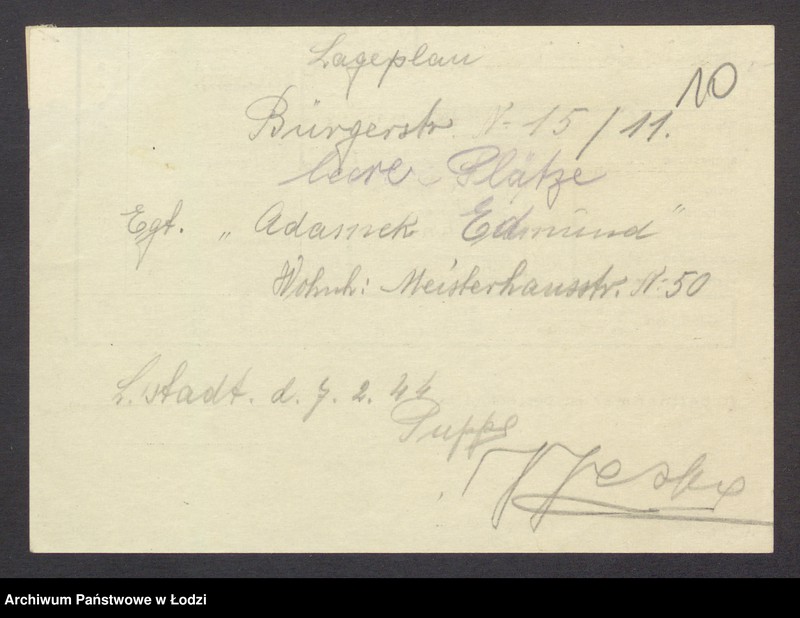 Lageplan
10
Bürgerstr. N. 15/11.
leere Plätze
Egt. „Adamek Edmund"
Wohnh: Meisterhausstr. N. 50
L. stadt. d. 7. 2. 44
Puppe
Archiwum Państwowe w Łodzi